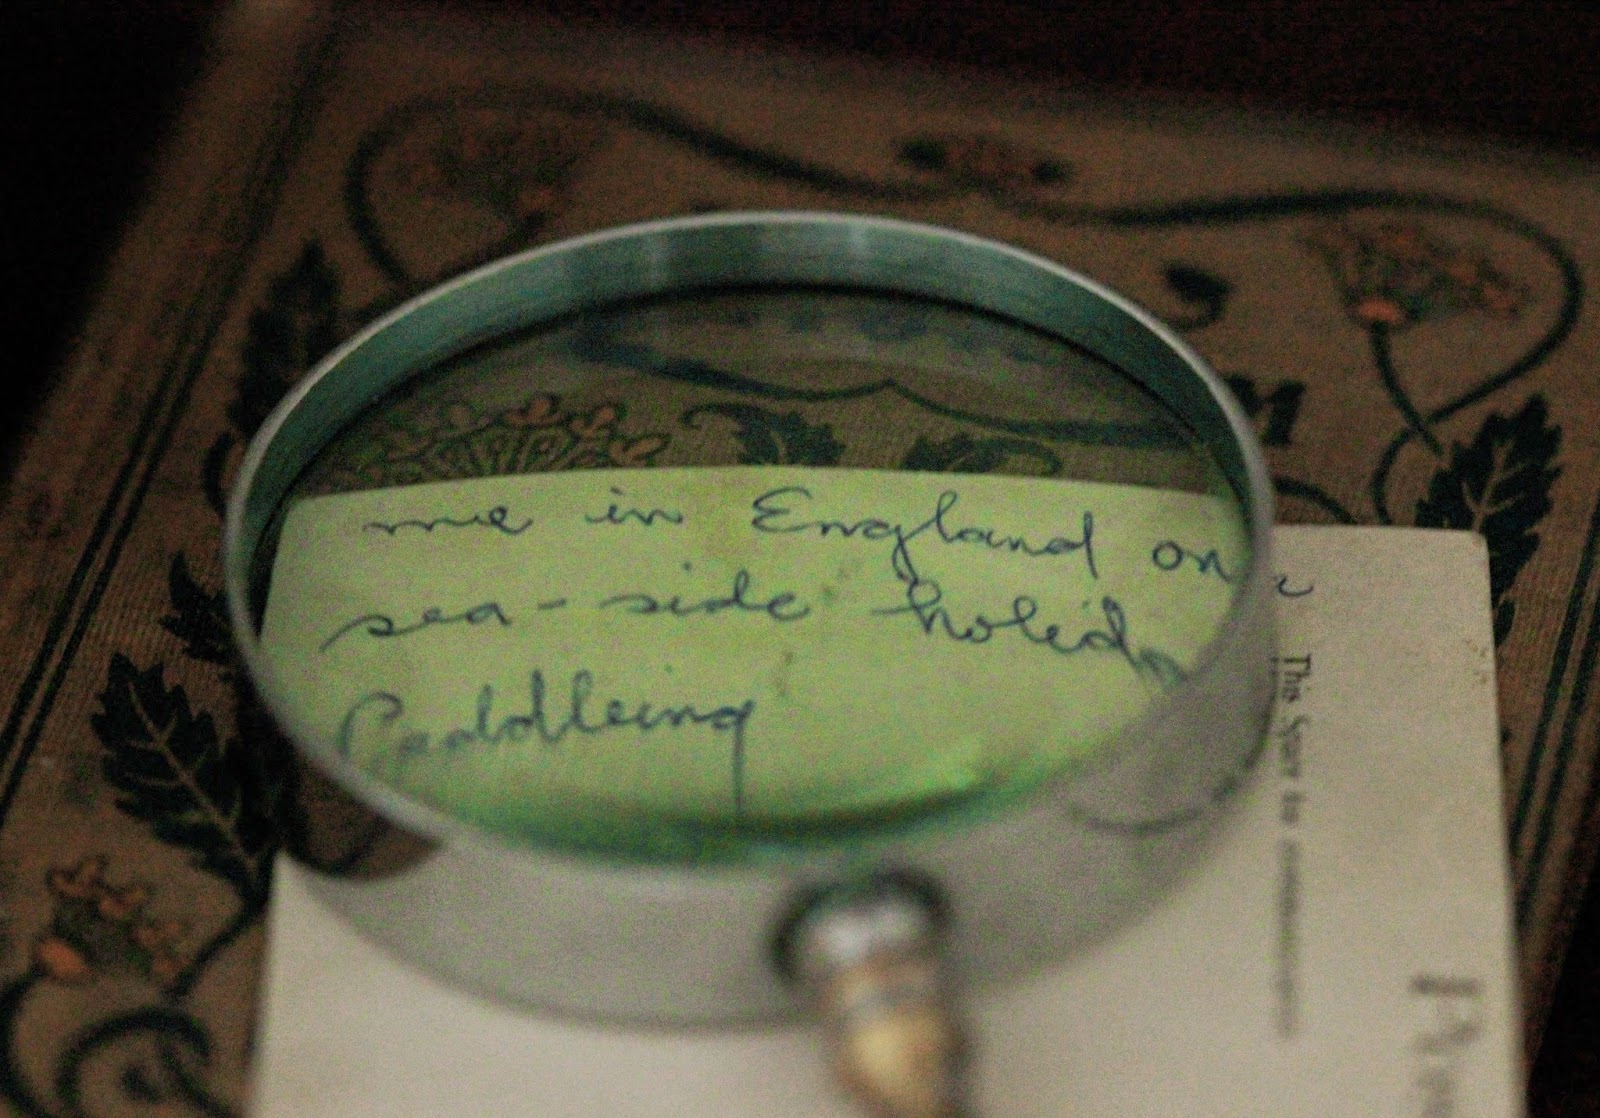 me in England on
sea-side holid
Paddleing
This Space to